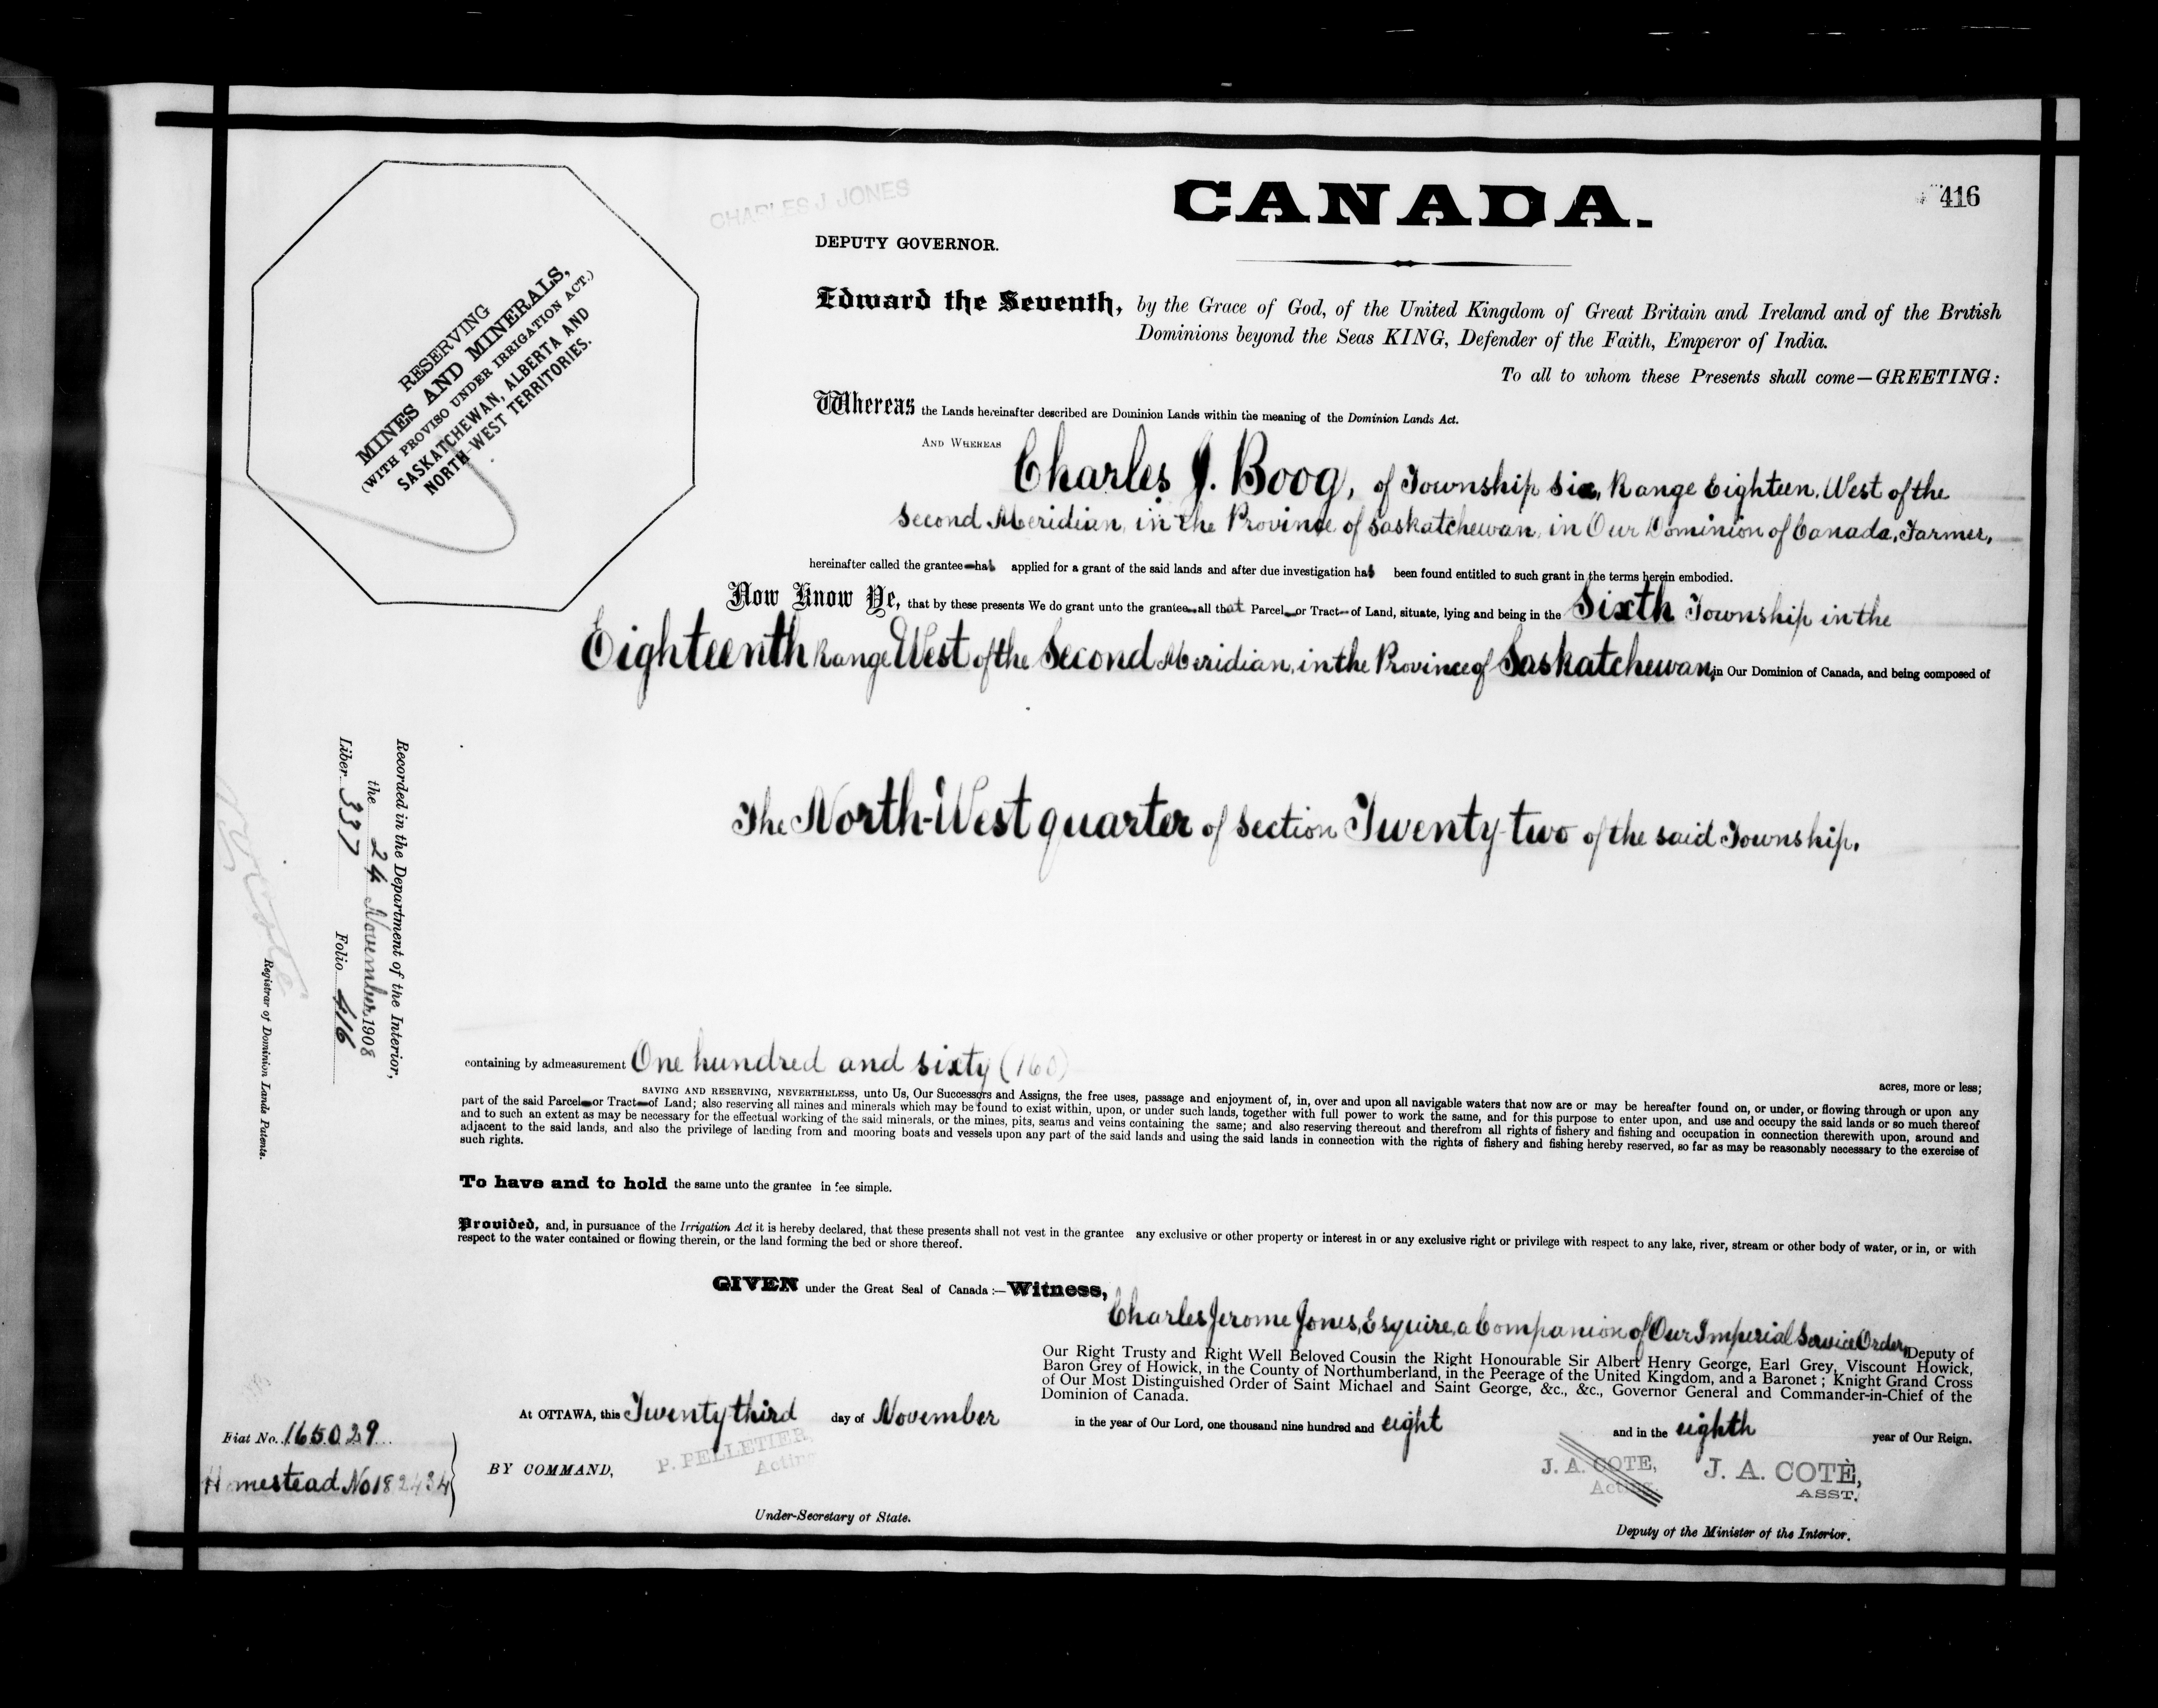 416
CHARLES J. JONES
CANADA.
DEPUTY GOVERNOR.
RESERVING
MINES AND MINERALS,
(WITH PROVISO UNDER IRRIGATION ACT.)
SASKATCHEWAN, ALBERTA AND
NORTH-WEST TERRITORIES.
Edward the Seventh, by the Grace of God, of the United Kingdom of Great Britain and Ireland and of the British
Dominions beyond the Seas KING, Defender of the Faith, Emperor of India.
To all to whom these Presents shall come—GREETING:
Whereas the Lands hereinafter described are Dominion Lands within the meaning of the Dominion Lands Act.
AND WHEREAS
Charles J. Boog, of Township Six, Range Eighteen, West of the
Second Meridian, in the Province of Saskatchewan, in Our Dominion of Canada, Farmer,
hereinafter called the grantee has applied for a grant of the said lands and after due investigation has been found entitled to such grant in the terms herein embodied.
Now Know Ye, that by these presents We do grant unto the grantee all that Parcel or Tract of Land, situate, lying and being in the Sixth Township in the
Eighteenth Range West of the Second Meridian, in the Province of Saskatchewan, in Our Dominion of Canada, and being composed of
The North-West quarter of Section Twenty-two of the said Township.
Recorded in the Department of the Interior,
the 24 November 1908
Liber 337 Folio 416
Registrar of Dominion Lands Patents.
containing by admeasurement One hundred and sixty (160) acres, more or less;
SAVING AND RESERVING, NEVERTHELESS, unto Us, Our Successors and Assigns, the free uses, passage and enjoyment of, in, over and upon all navigable waters that now are or may be hereafter found on, or under, or flowing through or upon any
part of the said Parcel or Tract of Land; also reserving all mines and minerals which may be found to exist within, upon, or under such lands, together with full power to work the same, and for this purpose to enter upon, and use and occupy the said lands or so much thereof
and to such an extent as may be necessary for the effectual working of the said minerals, or the mines, pits, seams and veins containing the same; and also reserving thereout and therefrom all rights of fishery and fishing and occupation in connection therewith upon, around and
adjacent to the said lands, and also the privilege of landing from and mooring boats and vessels upon any part of the said lands and using the said lands in connection with the rights of fishery and fishing hereby reserved, so far as may be reasonably necessary to the exercise of
such rights.
To have and to hold the same unto the grantee in fee simple.
Provided, and, in pursuance of the Irrigation Act it is hereby declared, that these presents shall not vest in the grantee any exclusive or other property or interest in or any exclusive right or privilege with respect to any lake, river, stream or other body of water, or in, or with
respect to the water contained or flowing therein, or the land forming the bed or shore thereof.
GIVEN under the Great Seal of Canada :— Witness,
Charles Jerome Jones, Esquire, a Companion of Our Imperial Service Order, Deputy of
Our Right Trusty and Right Well Beloved Cousin the Right Honourable Sir Albert Henry George, Earl Grey, Viscount Howick,
Baron Grey of Howick, in the County of Northumberland, in the Peerage of the United Kingdom, and a Baronet ; Knight Grand Cross
of Our Most Distinguished Order of Saint Michael and Saint George, &c., &c., Governor General and Commander-in-Chief of the
Dominion of Canada.
At OTTAWA, this Twenty third day of November in the year of Our Lord, one thousand nine hundred and eight and in the eighth year of Our Reign.
Fiat No. 165029
Homestead No 182434
BY COMMAND,
P. PELLETIER,
Acting
Under-Secretary of State.
J. A. COTE,
Acting
J. A. COTÈ,
ASST.
Deputy of the Minister of the Interior.